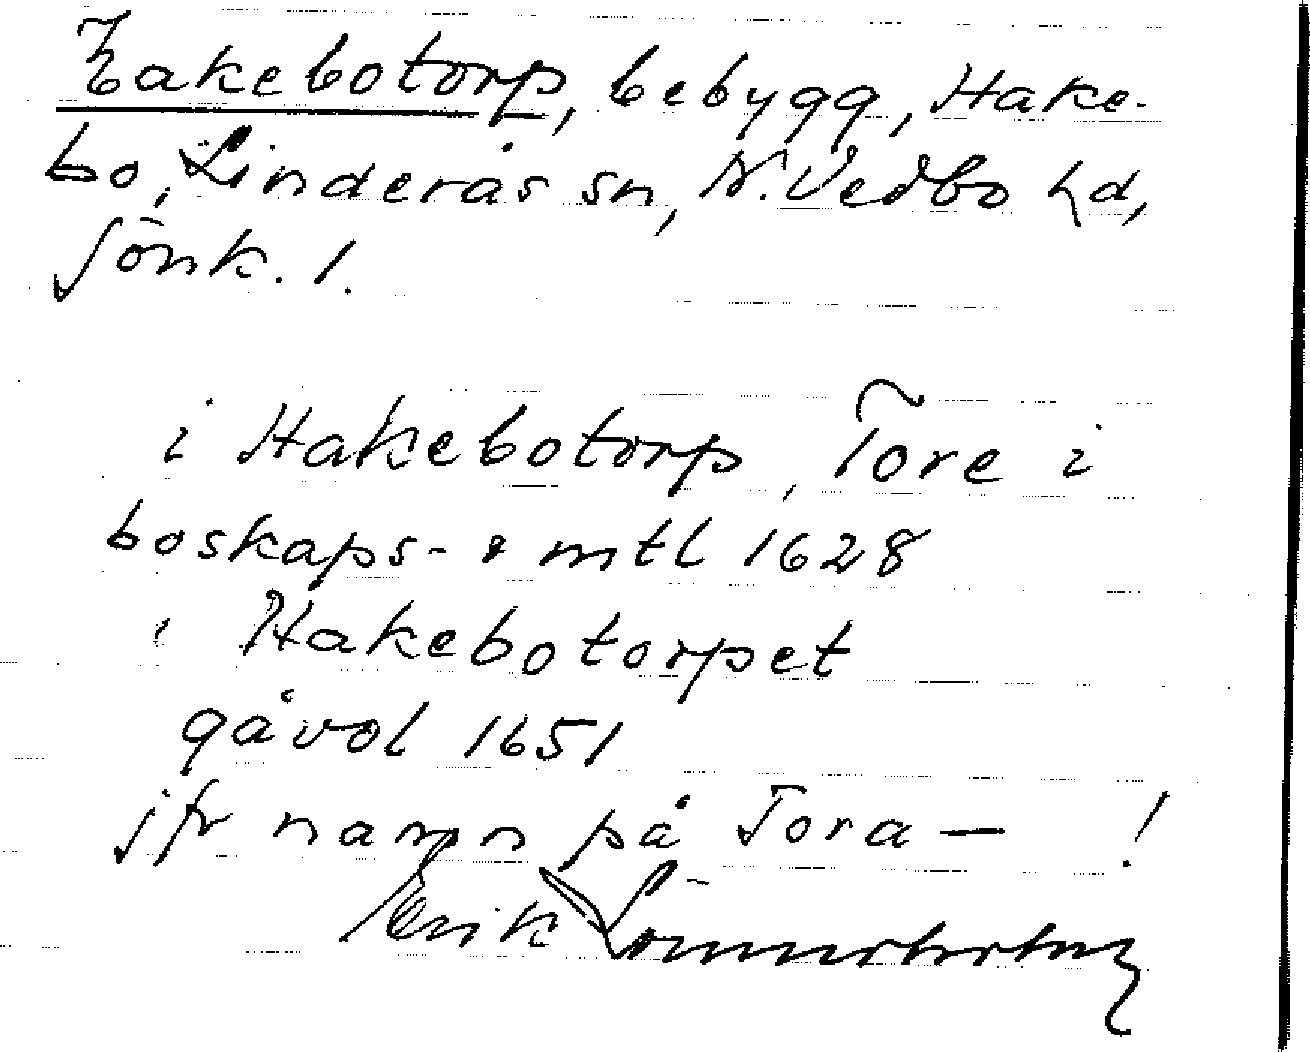 Hakebotorp, bebygg, Hake-
bo, Linderås sn, N. Vedbo hd,
Jönk. l.
i Hakebotorp, Tore i
boskaps- o mtl 1628
i Hakebotorpet
gåvol 1651
jfr namn på Tora— !
Erik Lönnerholm